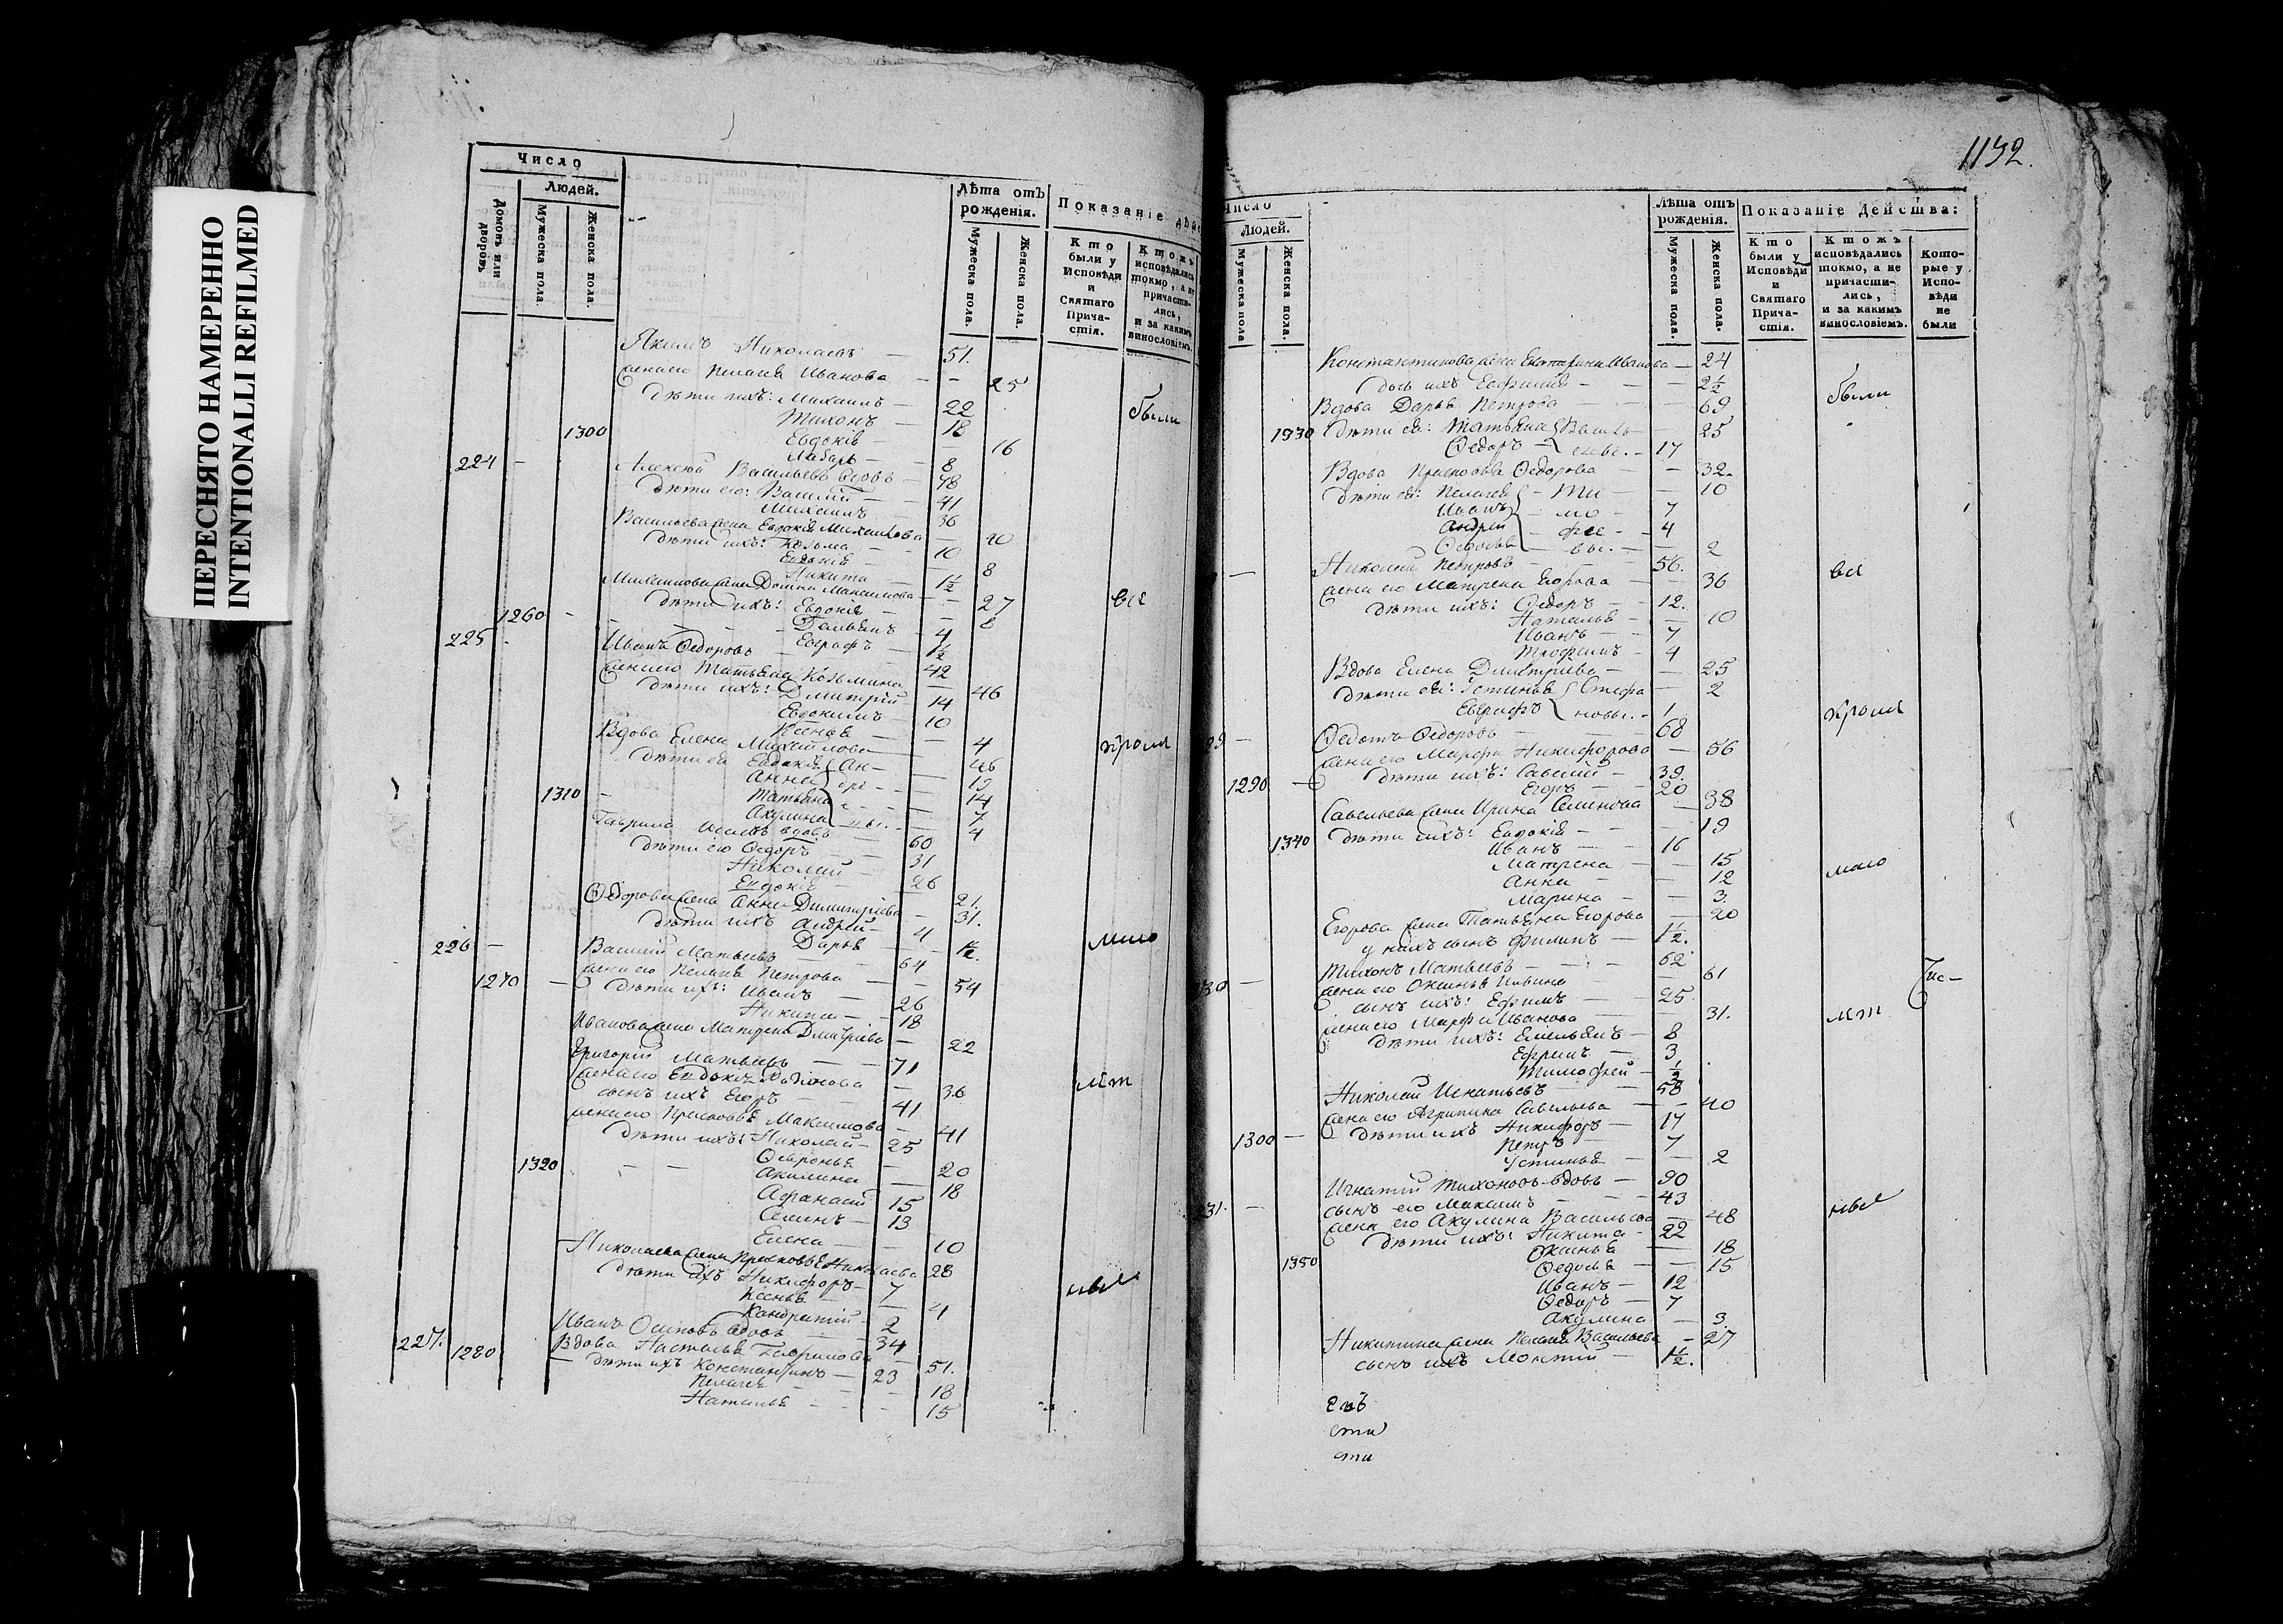 ПЕРЕСНЯТО НАМЕРЕННО
INTENTIONALLI REFILMED
Число
Людей.
Домовъ или дворовъ
Мужеска пола.
Женска пола.
Лѣта отъ рожденія.
Мужеска пола.
Женска пола.
Показаніе
Кто были у Исповѣди и Святаго Прича-стія.
Ктожъ исповѣдались токмо, а не причасти-лись, и за какимъ винословіемъ.
Якимъ Николаевъ — 51.
жена его Пелагея Иванова — 25
дѣти ихъ: Михаилъ — 22 были
Тихонъ — 18
1300 Евдокія — 16
Лазарь — 8
224 — Алексей Васильевъ вдовъ — 78
дѣти его: Василій — 41
Михаилъ — 36
Васильева жена Евдокія Михайлова — 40
дѣти ихъ: Козьма — 10
Евдокія — 8
Никита — 1½
Михайлова жена Домна Максимова — 27 все
дѣти ихъ: Евдокія — 8
1260 — Дамьянъ — 4
Евграфъ — 1½
225 Иванъ Ѳедоровъ — 42
жена его Татьяна Козьмина — 46
дѣти ихъ: Дмитрій 14
Евдокимъ — 10
Ксенья — 4
Вдова Елена Михайлова — 46 кроме
дѣти ея Евдокія Ан- — 19
Анна дре- — 14
1310 — Татьяна — 7
Акулина вы. — 4
Гаврила вдовъ 60
дѣти его Ѳедоръ — 31
Николай — 26
Евдокія — 21.
Ѳедорова жена Анна Димитріева — 31.
дѣти ихъ Андрей — 4
Дарья — ½. мало
226 — Василій Матвеевъ 64
жена его Пелагея Петрова — 54
1270 — дѣти их: Иванъ — 26
Никита — 18
Иванова жена Матрена Дмитріева — 22
Григорій Матвеевъ — 71
жена его Евдокія — 36 лет
сынъ ихъ Егоръ — 41
жена его Прасковья Максимова — 41
дѣти ихъ: Николай — 25
Ѳевронья — 20
1320 — Акилина — 18
Афанасий 15
Семенъ — 13
Елена — 10
Николаева жена Прасковья Николаева 28
дѣти ихъ Никифоръ — 7
Ксенья — 4
Кондратій — 2
Иванъ Осиповъ вдовъ — 34
227. 1280 Вдова Настасья Гаврилова — 51.
дѣти ихъ Константинъ — 23
Пелагея — 18
Наталья — 15
1192.
Число
Людей.
Мужеска пола
Женска пола.
Лѣта отъ рожденія.
Мужеска пола.
Женска пола.
Показаніе Действа:
Кто были у Исповѣди и Святаго Прича-стія.
Ктожъ исповѣдались токмо, а не причасти-лись, и за какимъ винословіемъ.
Кото-рые у Испо-вѣди не были
Константинова жена Екатерина Иванова — 24
дочь ихъ Евфимия — 2½
Вдова Дарья Петрова — 69 были
1330 Дѣти ея: Татьяна Василь- 25
Ѳедоръ евы. — 17
Вдова Прасковья Ѳедорова — 32.
дѣти ея: Пелагея — Ти — 10
Иванъ — мо — 7
Андрей — фее — 4
Ѳедосья — вы. — 2
— Николай Петровъ — 56. все
жена его Матрена Егорова — 36
дѣти ихъ: Ѳедоръ — 12.
Наталья — 10
Иванъ — 7
Трофимъ — 4
Вдова Елена Дмитріева — 25
дѣти ея: Устинья Стефа — 2
Евграфъ новы. — 1 кроме
29 — Ѳедотъ Ѳедоровъ — 68
жена его Марфа Никифорова — 56
дѣти ихъ: Савелій — 39.
1290 — Егоръ — 20
Савельева жена Ирина Семенова — 38
дѣти ихъ: Евдокія — 19
1340 Иванъ — 16
Матрена — 15
Анна — 12 мало
Марина — 3.
Егорова жена Татьяна Егорова — 20
у нихъ сынъ Филипъ — 1½.
Тихонъ Матвеевъ — 62
30 — жена его Оксинья — 61
сынъ ихъ: Ефимъ — 25
жена его Марфа Иванова — 31. лет
дѣти ихъ: Емельянъ — 8
Ефремъ — 3
Тимофей — ½
Николай Игнатьевъ — 58
жена его Агрипина Савельева — 40
1300 — дѣти ихъ Никифоръ — 17
Петръ — 7
Устинья — 2
Игнатій Тихоновъ вдовъ — 90
31. — сынъ его Максимъ — 43
жена его Акулина Васильева — 48
дѣти ихъ: Никита — 22
Оксинья — 18
1350 Ѳедосья — 15
Иванъ — 12
Ѳедоръ — 7
Акулина — 3.
Никитина жена Пелагея Васильева — 27
сынъ ихъ — 1½.
сти
сти